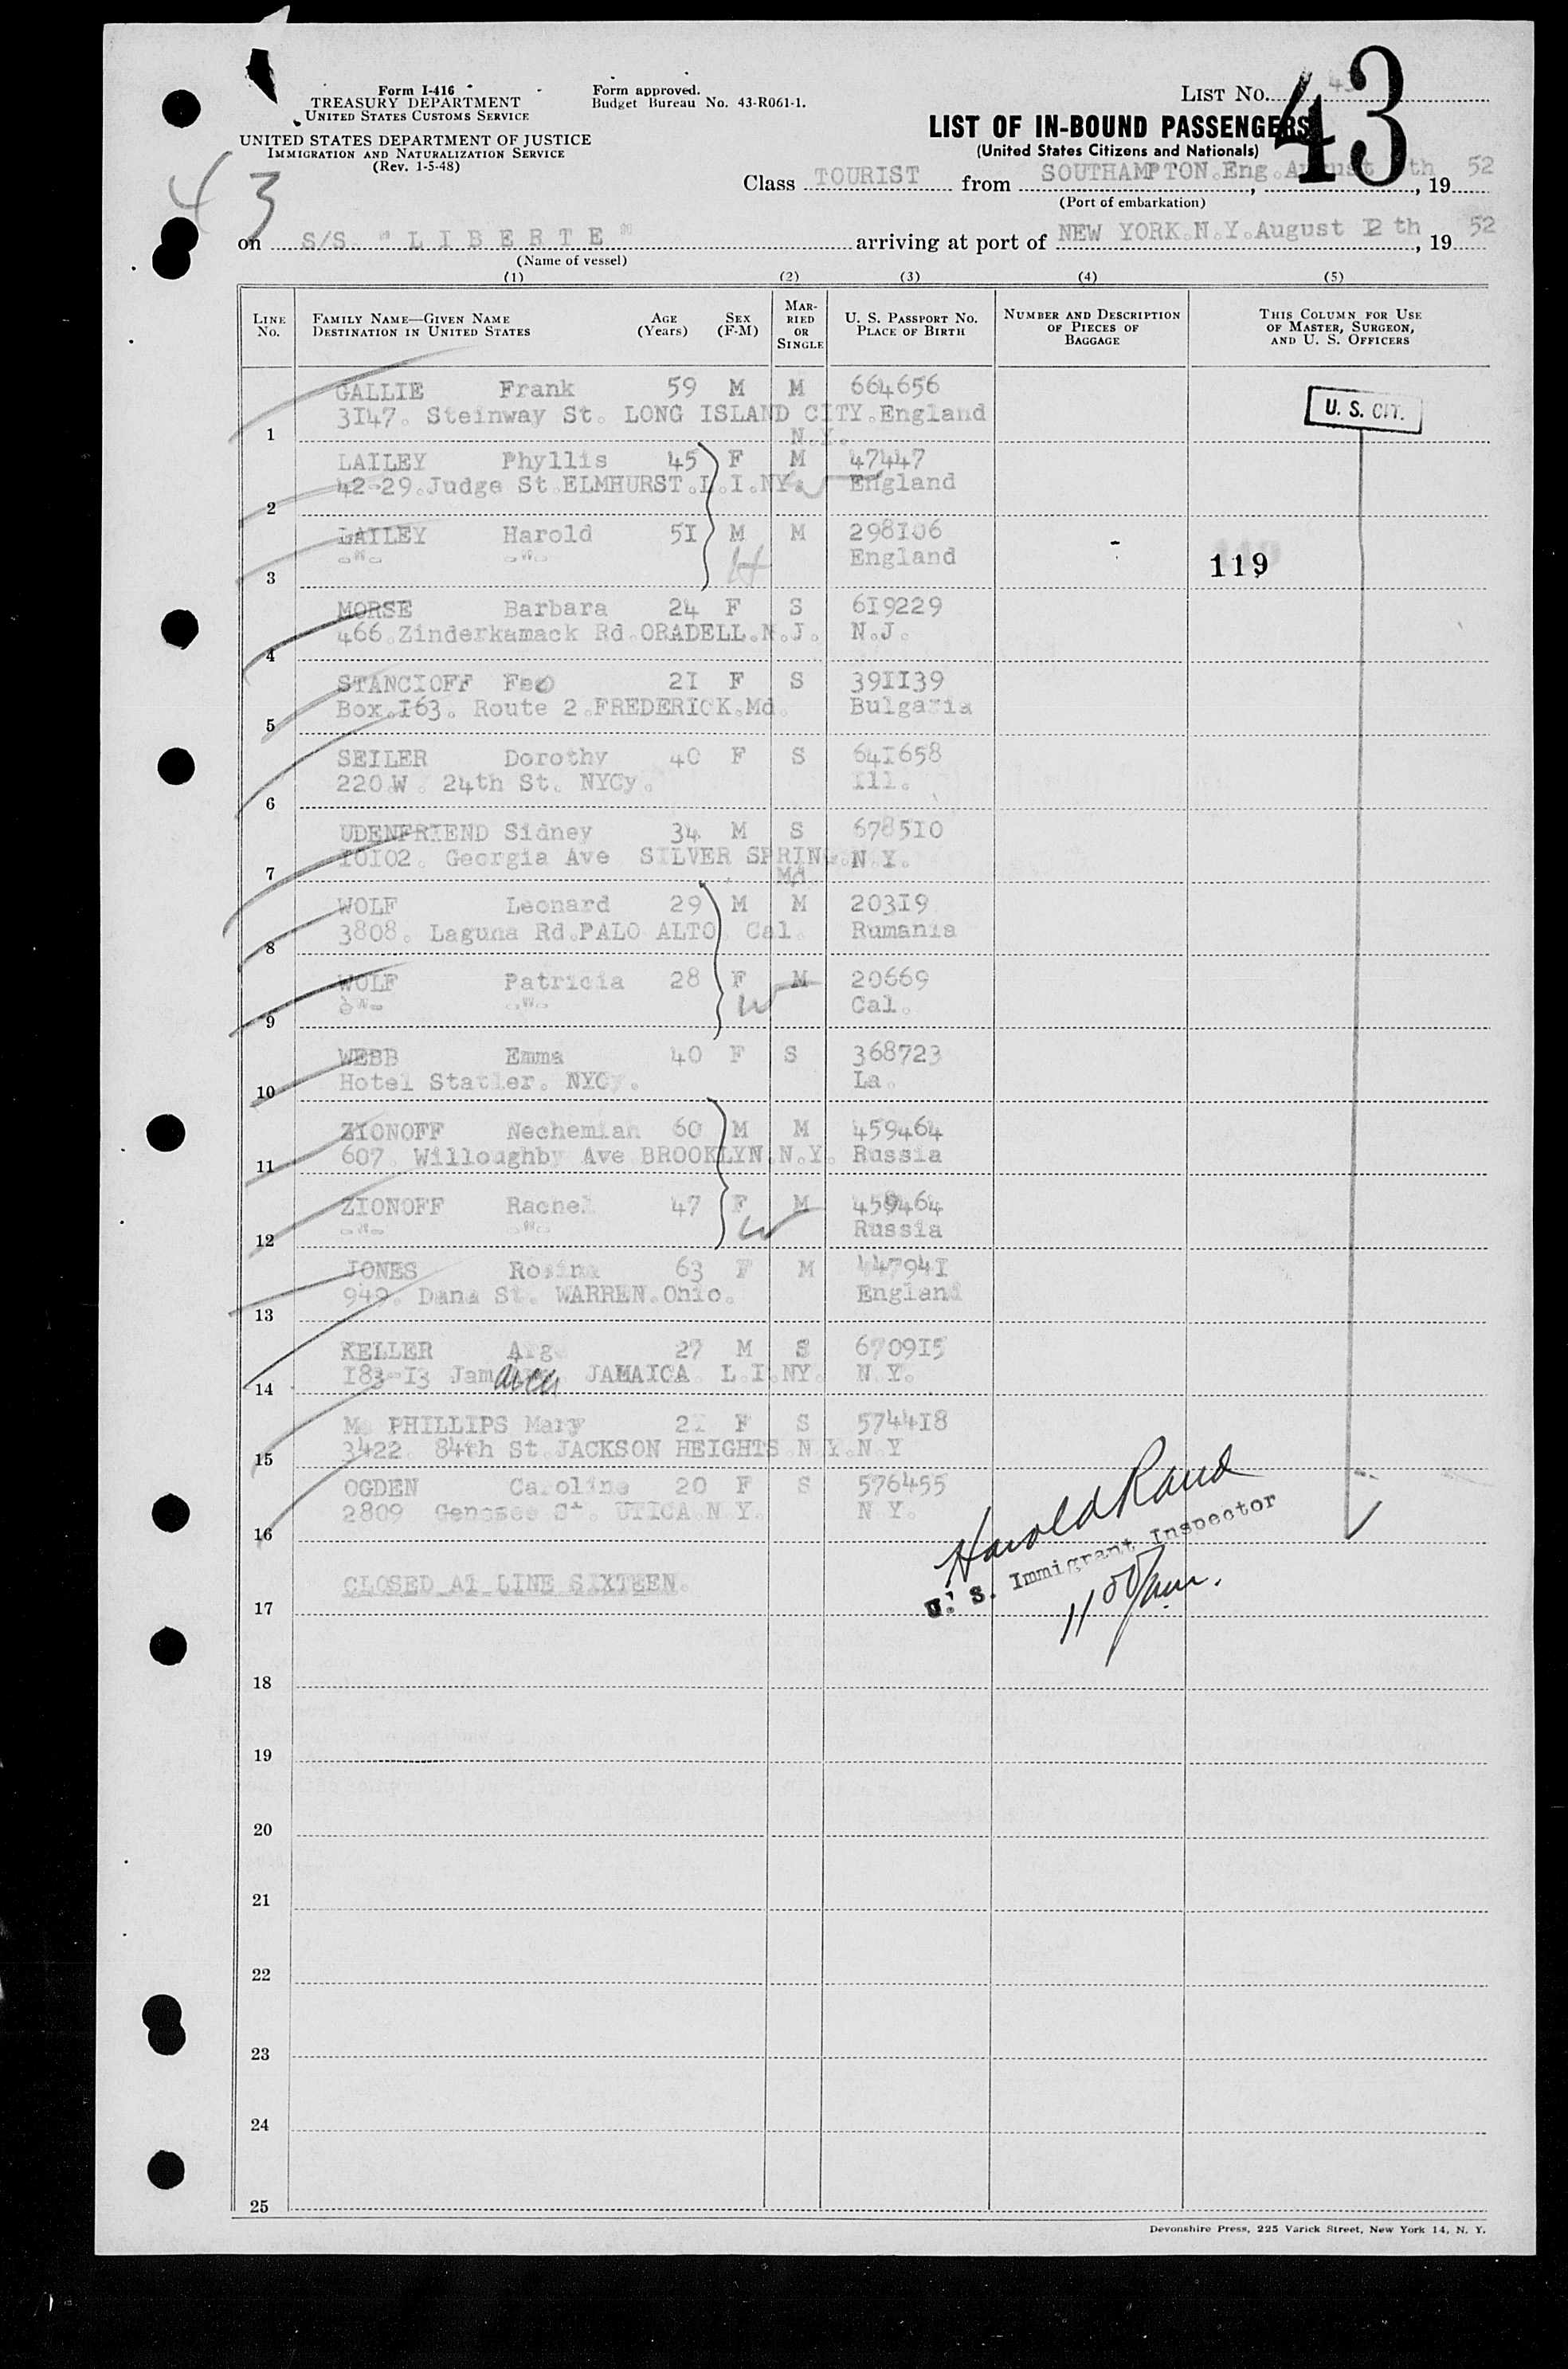 Form I-416
TREASURY DEPARTMENT
UNITED STATES CUSTOMS SERVICE
UNITED STATES DEPARTMENT OF JUSTICE
IMMIGRATION AND NATURALIZATION SERVICE
(Rev. 1-5-48)
Form approved.
Budget Bureau No. 43-R061-1.
LIST No.
43
LIST OF IN-BOUND PASSENGERS
(United States Citizens and Nationals)
43
Class TOURIST from SOUTHAMPTON.Eng. August th, 19 52
(Port of embarkation)
on S/S. "LIBERTE" arriving at port of NEW YORK.N.Y.August 12 th, 19 52
(Name of vessel)
(1) (2) (3) (4) (5)
LINE No. FAMILY NAME—GIVEN NAME DESTINATION IN UNITED STATES AGE (Years) SEX (F-M) MARRIED OR SINGLE U. S. PASSPORT No. PLACE OF BIRTH NUMBER AND DESCRIPTION OF PIECES OF BAGGAGE THIS COLUMN FOR USE OF MASTER, SURGEON, AND U. S. OFFICERS
GALLIE Frank 59 M M 664656
U. S. CIT.
1 3147. Steinway St. LONG ISLAND CITY. England
N.Y.
LAILEY Phyllis 45 F M 47447
2 42-29.Judge St.ELMHURST.L.I.NY. England
LAILEY Harold 51 M M 298106
3 -"- -"- England 119
MORSE Barbara 24 F S 619229
4 466.Zinderkamack Rd.ORADELL.N.J. N.J.
STANCIOFF Feo 21 F S 391139
5 Box.163. Route 2.FREDERICK.Md. Bulgaria
SEILER Dorothy 40 F S 641658
6 220.W. 24th St. NYCy. Ill.
UDENFRIEND Sidney 34 M S 678510
7 10102. Georgia Ave SILVER SPRING. N.Y.
Md.
WOLF Leonard 29 M M 20319
8 3808. Laguna Rd.PALO ALTO Cal. Rumania
WOLF Patricia 28 F M 20669
9 -"- -"- Cal.
WEBB Emma 40 F S 368723
10 Hotel Statler. NYCy. La.
ZIONOFF Nechemiah 60 M M 459464
11 607. Willoughby Ave BROOKLYN.N.Y. Russia
ZIONOFF Rachel 47 F M 459464
12 -"- -"- Russia
JONES Rosina 63 F M 447941
13 949. Dana St. WARREN.Ohio. England
KELLER 27 M S 670915
14 183-13 Jamaica JAMAICA. L.I.NY. N.Y.
Mc PHILLIPS Mary 21 F S 574418
15 3422. 84th St.JACKSON HEIGHTS.N.Y. N.Y
OGDEN Caroline 20 F S 576455
16 2809 Genesee St. UTICA.N.Y. N.Y.
Harold Rand
U. S. Immigrant Inspector
11 00/am.
CLOSED AT LINE SIXTEEN.
17
18
19
20
21
22
23
24
25
Devonshire Press, 225 Varick Street, New York 14, N. Y.